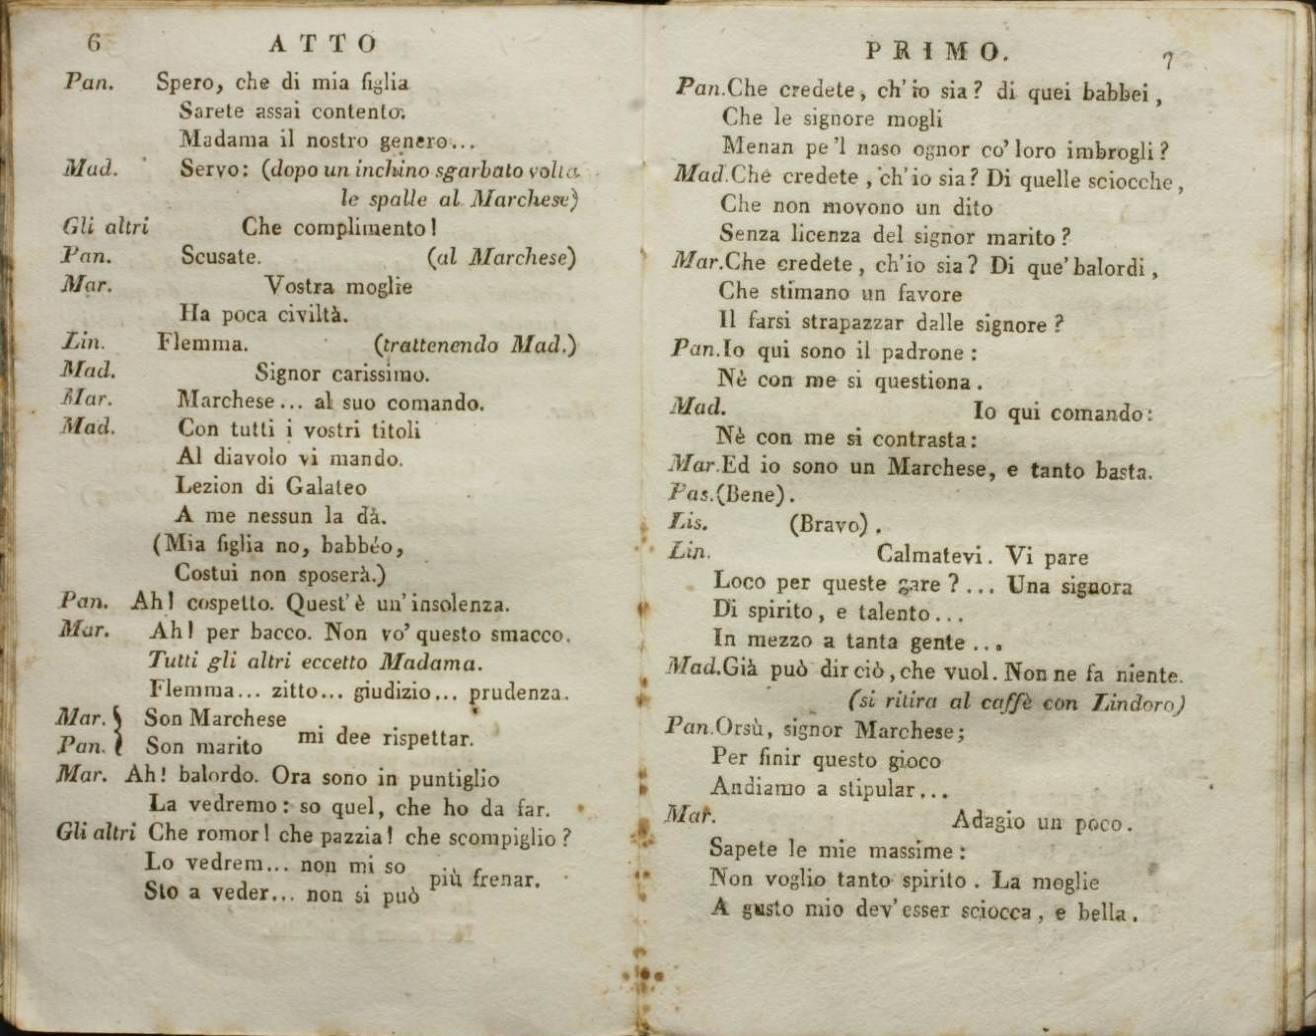 6 ATTO
Pan. Spero, che di mia figlia
Sarete assai contento.
Madama il nostro genero...
Mad. Servo: (dopo un inchino sgarbato volta
le spalle al Marchese)
Gli altri Che complimento!
Pan. Scusate. (al Marchese)
Mar. Vostra moglie
Ha poca civiltà.
Lin. Flemma. (trattenendo Mad.)
Mad. Signor carissimo.
Mar. Marchese... al suo comando.
Mad. Con tutti i vostri titoli
Al diavolo vi mando.
Lezion di Galateo
A me nessun la dà.
(Mia figlia no, babbéo,
Costui non sposerà.)
Pan. Ah! cospetto. Quest'è un'insolenza.
Mar. Ah! per bacco. Non vo' questo smacco.
Tutti gli altri eccetto Madama.
Flemma... zitto... giudizio... prudenza.
Mar. } Son Marchese
Pan. } Son marito mi dee rispettar.
Mar. Ah! balordo. Ora sono in puntiglio
La vedremo: so quel, che ho da far.
Gli altri Che romor! che pazzia! che scompiglio?
Lo vedrem... non mi so
Sto a veder... non si può più frenar.
PRIMO. 7
Pan. Che credete, ch'io sia? di quei babbei,
Che le signore mogli
Menan pe'l naso ognor co' loro imbrogli?
Mad. Che credete, ch'io sia? Di quelle sciocche,
Che non movono un dito
Senza licenza del signor marito?
Mar. Che credete, ch'io sia? Di que' balordi,
Che stimano un favore
Il farsi strapazzar dalle signore?
Pan. Io qui sono il padrone:
Nè con me si questiona.
Mad. Io qui comando:
Nè con me si contrasta:
Mar. Ed io sono un Marchese, e tanto basta.
Pas. (Bene).
Lis. (Bravo).
Lin. Calmatevi. Vi pare
Loco per queste gare?... Una signora
Di spirito, e talento...
In mezzo a tanta gente...
Mad. Già può dir ciò, che vuol. Non ne fa niente.
(si ritira al caffè con Lindoro)
Pan. Orsù, signor Marchese;
Per finir questo gioco
Andiamo a stipular...
Mar. Adagio un poco.
Sapete le mie massime:
Non voglio tanto spirito. La moglie
A gusto mio dev'esser sciocca, e bella.